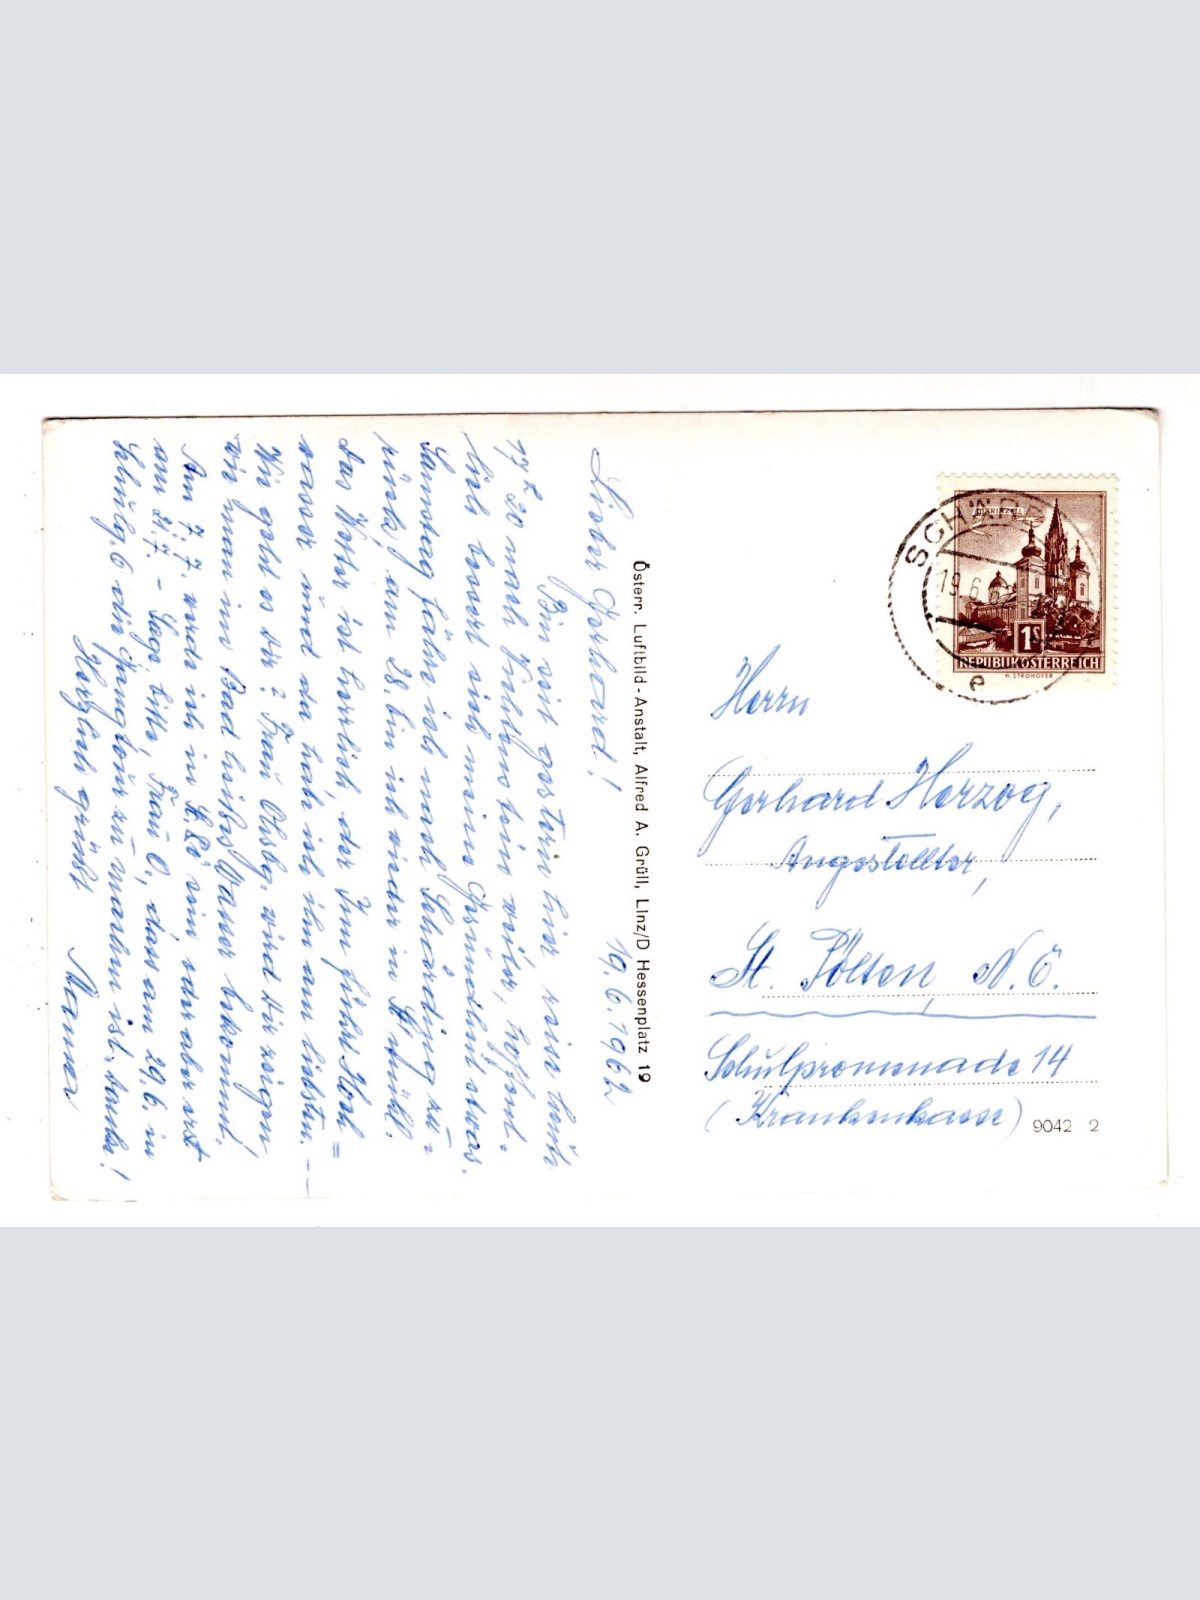 19.6.1962
Lieber Gerhard!
Bin seit gestern hier, reise heute
17h 20 nach weiter, hoffent-
lich bessert sich meine Gesundheit etwas.
Samstag fahre ich nach Schärding zu-
rück, am 28. bin ich wieder in
Das Wetter ist herrlich, der Inn führt Hoch=
wasser und da hab ich ihn am liebsten. --
Wie geht es Dir? Frau wird Dir zeigen,
wie man im Bad heißes Wasser bekommt.
Am 7.7. werde ich in sein oder aber erst
am 21.7. – Sage bitte, Frau O., dass am 29.6. in
6 die zu machen ist, danke!
Herzlich grüßt Mama
Österr. Luftbild-Anstalt, Alfred A. Grüll, Linz/D Hessenplatz 19
SCHÄR
19.6.
e
MARIAZELL
1S
REPUBLIK ÖSTERREICH
H. STROHOFER
Herrn
Gerhard Herzog,
Angestellter,
St. Pölten, N.Ö.
Schulpromenade 14
(Krankenkasse)
9042 2